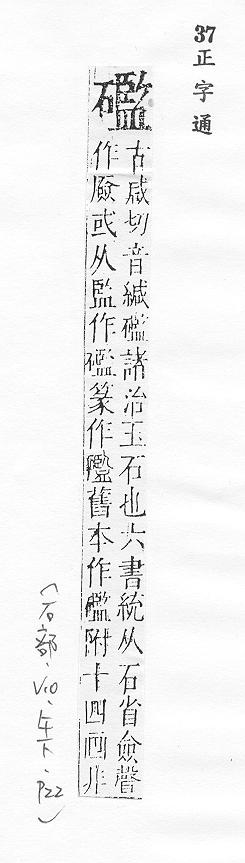 37
正字通
礛
古咸切音緘礛諸治玉石也六書統从石省僉聲
作厱或从監作礛篆作舊本作礛附十四画非
(石部.V10.午下.P22)